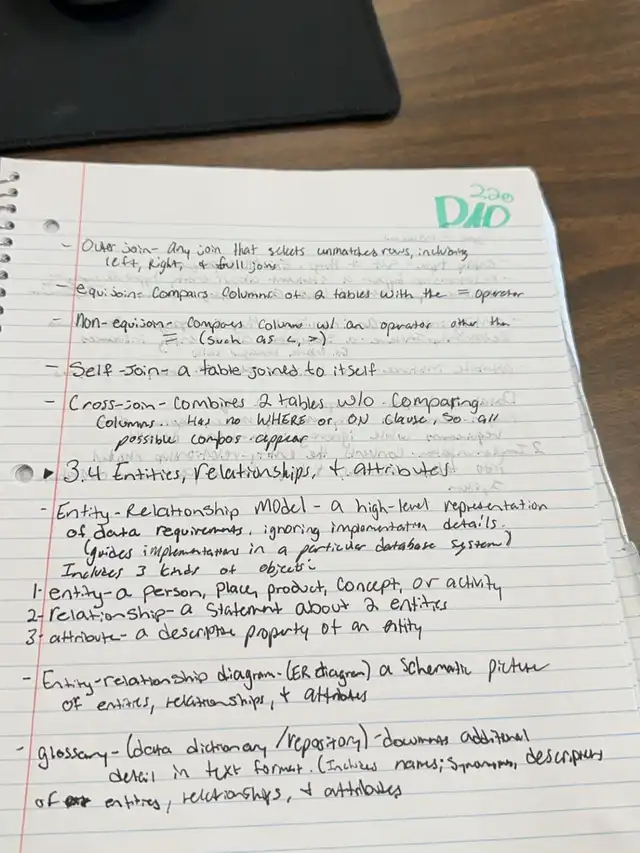 220
D10
- Outer join- Any join that selects unmatches rows, including
left, right, + full joins
- equijoin- Compares Columns of 2 tables with the = operator
- Non-equijoin- compares column w/ an operator other the
= (such as <, >)
- Self-Join- a table joined to itself
- Cross-join- Combines 2 tables w/o comparing
columns. Has no WHERE or ON clause, so all
possible combos appear
▸ 3.4 Entities, relationships, + attributes
- Entity-Relationship Model- a high-level representation
of data requirements, ignoring implementation details.
(guides implementations in a particular database system)
Includes 3 kinds of objects:
1- entity- a person, place, product, concept, or activity
2- relationship- a statement about 2 entities
3- attribute- a descriptive property of an entity
- Entity-relationship diagram- (ER diagram) a schematic picture
of entities, relationships, + attributes
- glossary- (data dictionary/repository)- documents additional
detail in text format. (Includes names, synonyms, descriptions
of entities, relationships, + attributes